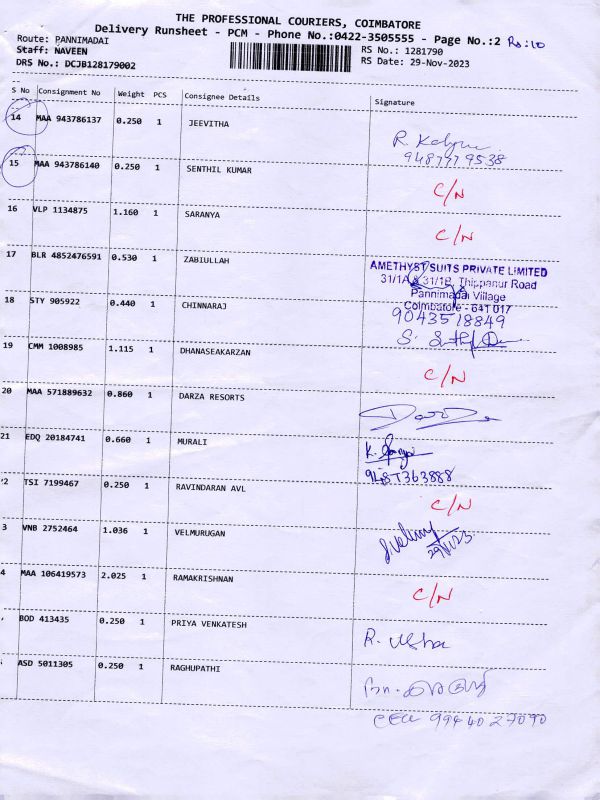 THE PROFESSIONAL COURIERS, COIMBATORE
Delivery Runsheet - PCM - Phone No.:0422-3505555 - Page No.:2
Route: PANNIMADAI
RS No.: 1281790
Staff: NAVEEN
RS Date: 29-Nov-2023
DRS No.: DCJB128179002
S No Consignment No Weight PCS Consignee Details Signature
14 MAA 943786137 0.250 1 JEEVITHA
15 MAA 943786140 0.250 1 SENTHIL KUMAR C/N
16 VLP 1134875 1.160 1 SARANYA C/N
17 BLR 4852476591 0.530 1 ZABIULLAH
AMETHYST SUITS PRIVATE LIMITED
31/1A & 31/1B, Thippanur Road
Pannimadai Village
Coimbatore - 641 017
18 STY 905922 0.440 1 CHINNARAJ
9043518849
19 CMM 1008985 1.115 1 DHANASEAKARZAN C/N
20 MAA 571889632 0.860 1 DARZA RESORTS
21 EDQ 20184741 0.660 1 MURALI
2 TSI 7199467 0.250 1 RAVINDARAN AVL C/N
3 VNB 2752464 1.036 1 VELMURUGAN
4 MAA 106419573 2.025 1 RAMAKRISHNAN C/N
BOD 413435 0.250 1 PRIYA VENKATESH R. Usha
ASD 5011305 0.250 1 RAGHUPATHI
CELL 9944027090